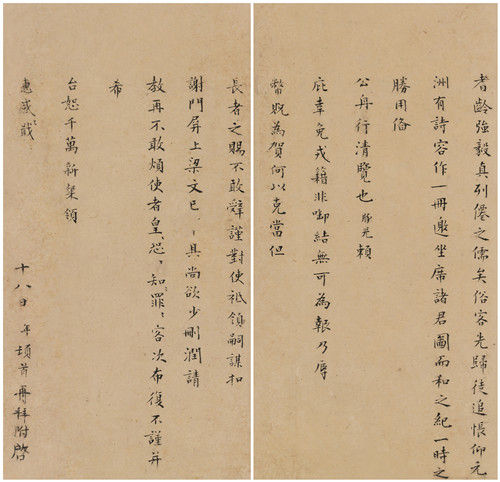 耆龄強毅真列僊之儒矣俗客先歸徒追悵仰元
洲有詩容作一冊邀坐席諸君圖而和之紀一時之
勝用俻
公舟行清覽也豚兒頼
庇幸免戎籍非啣結無可為報乃辱
幣貺為賀何以克當但
長者之賜不敢辭謹對使祗領嗣謀扣
謝門屏上梁文已〻具尚欲少刪潤請
教再不敢煩使者皇〻恐〻知罪〻客次布復不謹并
希
台恕千萬新架領
惠感〻戢〻
十八日 年頓首再拜附啓